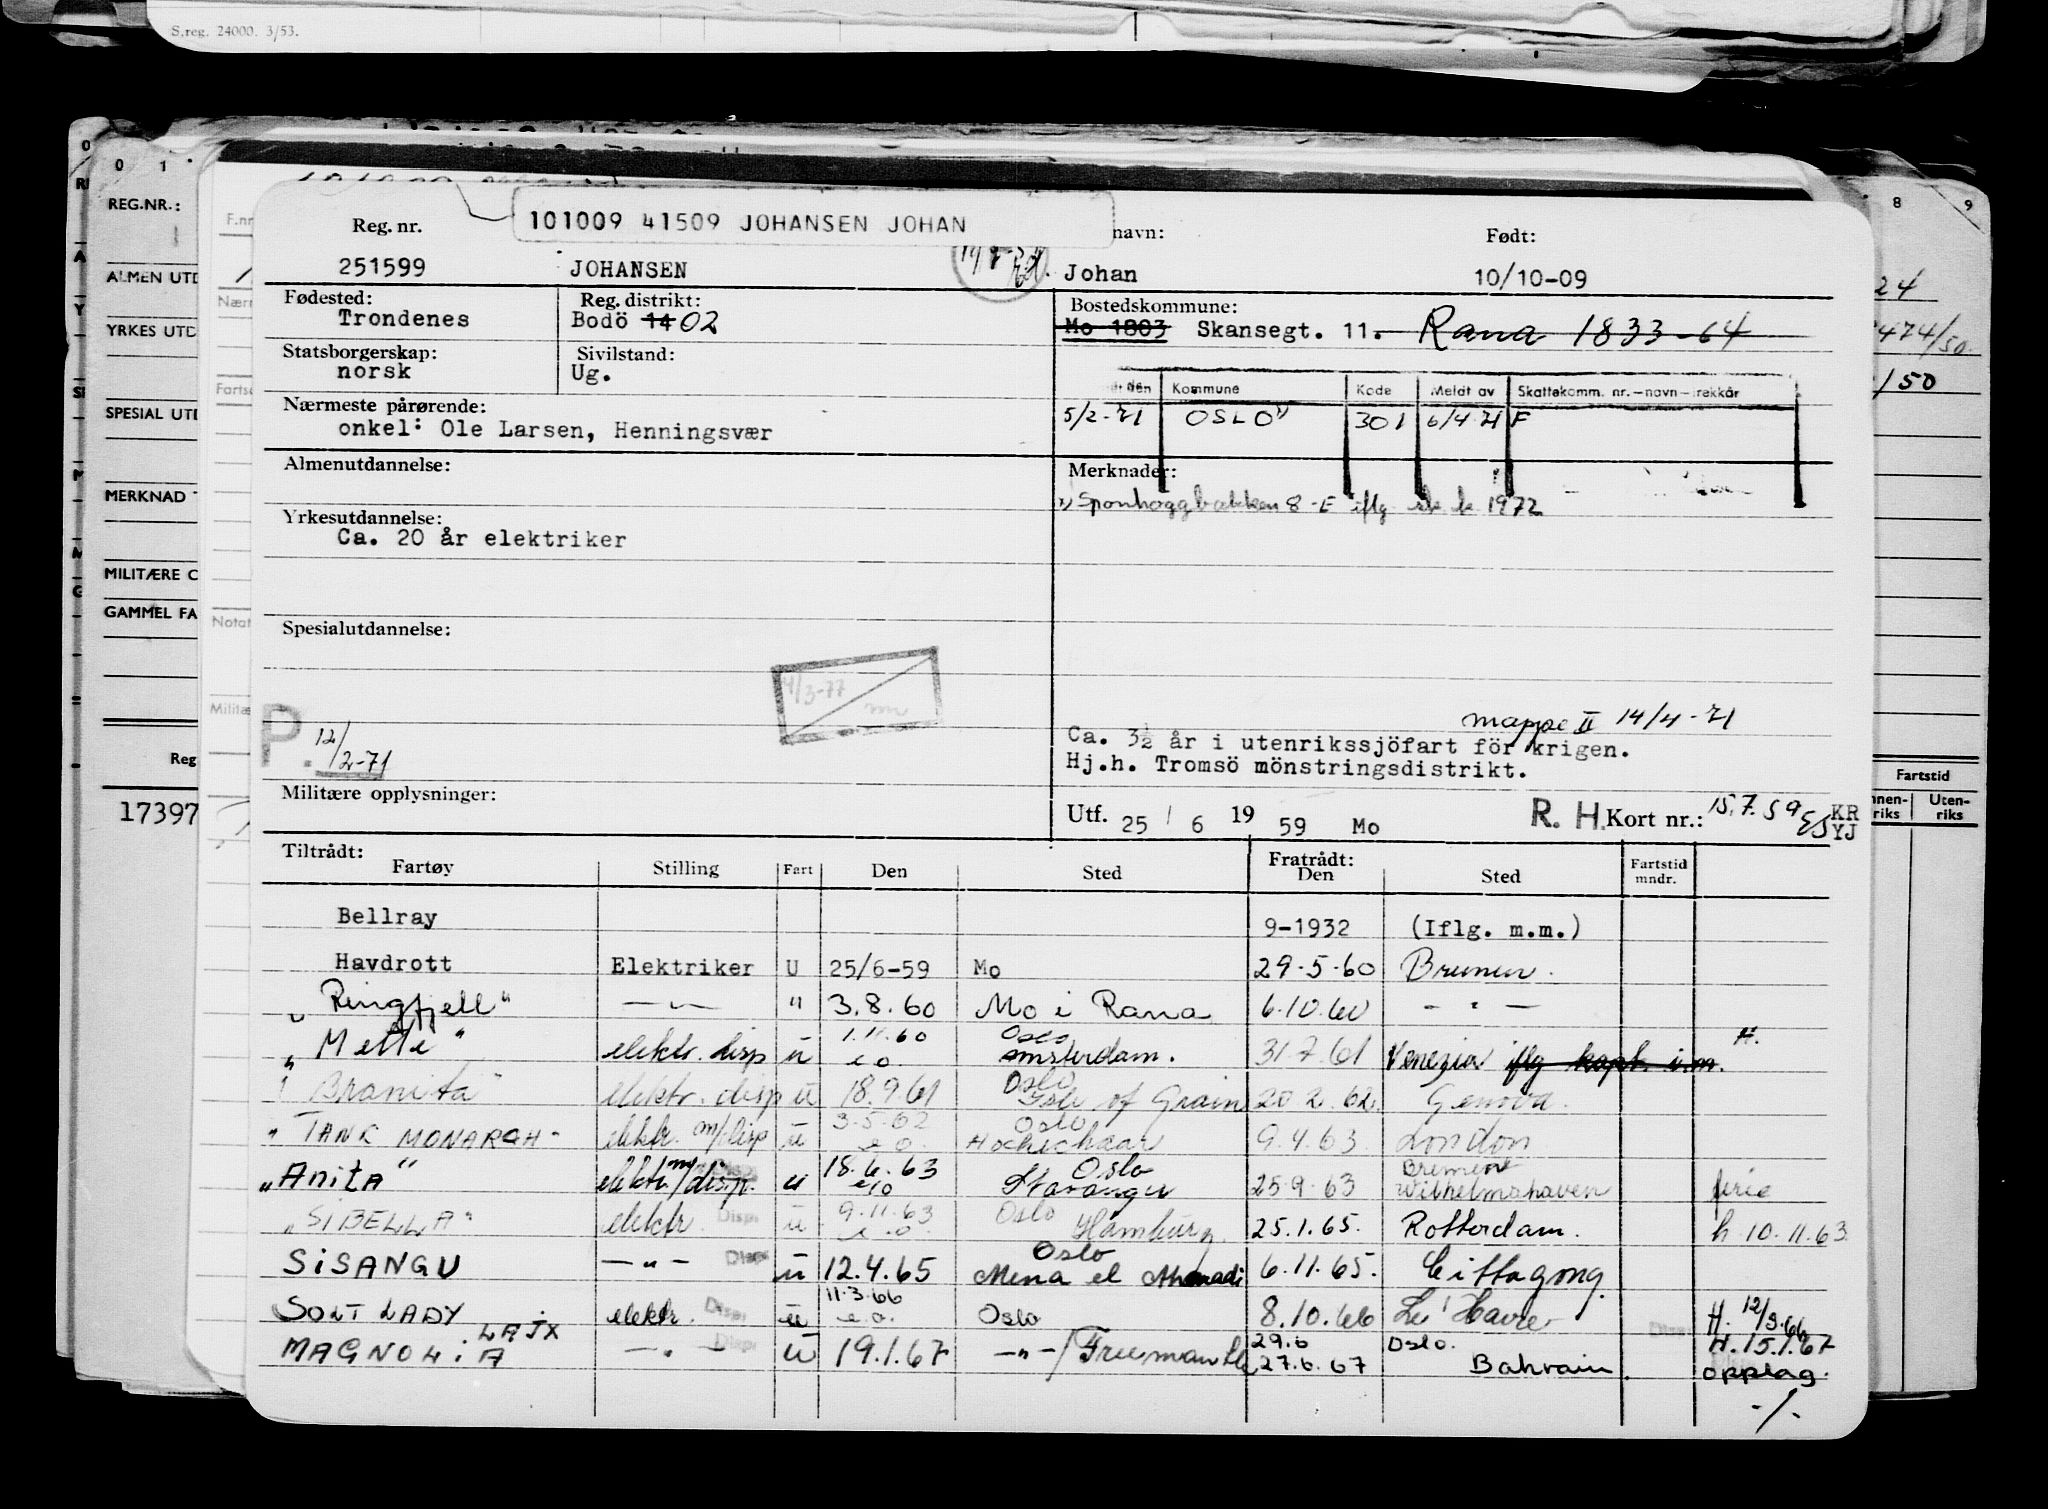 S.reg. 24000. 3/53.
0 1
8 9
REG.NR.:
ALMEN UTD
YRKES UTD
SPESIAL UTD
MERKNAD
MILITÆRE O
GAMMEL FA
Reg
17397
F.nr
Nærm
Fartsø
Notat
Militæ
24
474/50
/50
Fartstid
Uten-
riks
101009 41509 JOHANSEN JOHAN
Reg. nr. navn: Født:
251599 JOHANSEN Johan 10/10-09
Fødested: Reg. distrikt: Bostedskommune:
Trondenes Bodö 14 02 Mo 1803 Skansegt. 11. Rana 1833-64
Statsborgerskap: Sivilstand:
norsk Ug.
Kommune Kode Meldt av Skattekomm. nr.-navn-trekkår
5/2-71 OSLO 301 6/4 71 F
Nærmeste pårørende:
onkel: Ole Larsen, Henningsvær
Almenutdannelse: Merknader:
Sponhoggbakken 8-E iflg 1972
Yrkesutdannelse:
Ca. 20 år elektriker
Spesialutdannelse:
4/3-77
mappe II 14/4-71
P. 12/2-71
Ca. 3½ år i utenrikssjöfart för krigen.
Hj.h. Tromsö mönstringsdistrikt.
Militære opplysninger:
Utf. 25 / 6 1959 Mo R. H. Kort nr.: 15.7.59 KR
YJ
Tiltrådt: Fratrådt:
Fartøy Stilling Fart Den Sted Den Sted Fartstid mndr.
Bellray 9-1932 (Iflg. m.m.)
Havdrott Elektriker U 25/6-59 Mo 29.5.60 Bremen.
"Ringfjell" —"— " 3.8.60 Mo i Rana 6.10.60 —"—
1.11.60 Oslo H.
"Mette" elektr. disp u e.o. Amsterdam. 31.7.61 Venezia iflg kapt. i.m.
Oslo
"Branita" elektr. disp u 18.9.61 Isle of Grain 20 2.62. Genova.
3.5.62 Oslo
"TANK MONARCH" elektr. m/disp u e o. 9.4.63 London
18.6.63 Oslo Bremen
"Anita" elektr m/disp. u e/o Stavanger 25.9.63 Wilhelmshaven ferie
9.11.63 Oslo
"SIBELLA" elektr. Disp. u e.o. Hamburg 25.1.65. Rotterdam. h. 10.11.63.
Oslo
SISANGU —"— Disp. u 12.4.65 Mena el Ahmadi 6.11.65. Cittagong.
11.3.66
SOLT LADY elektr. Disp. u e.o. Oslo 8.10.66 Le Havre H. 12/3.66
LAJX 29.6 Oslo. H. 15.1.67
MAGNOLIA —"— Disp. u 19.1.67 —"—/Freemantle 27.6.67 Bahrain. opplag.
-/-